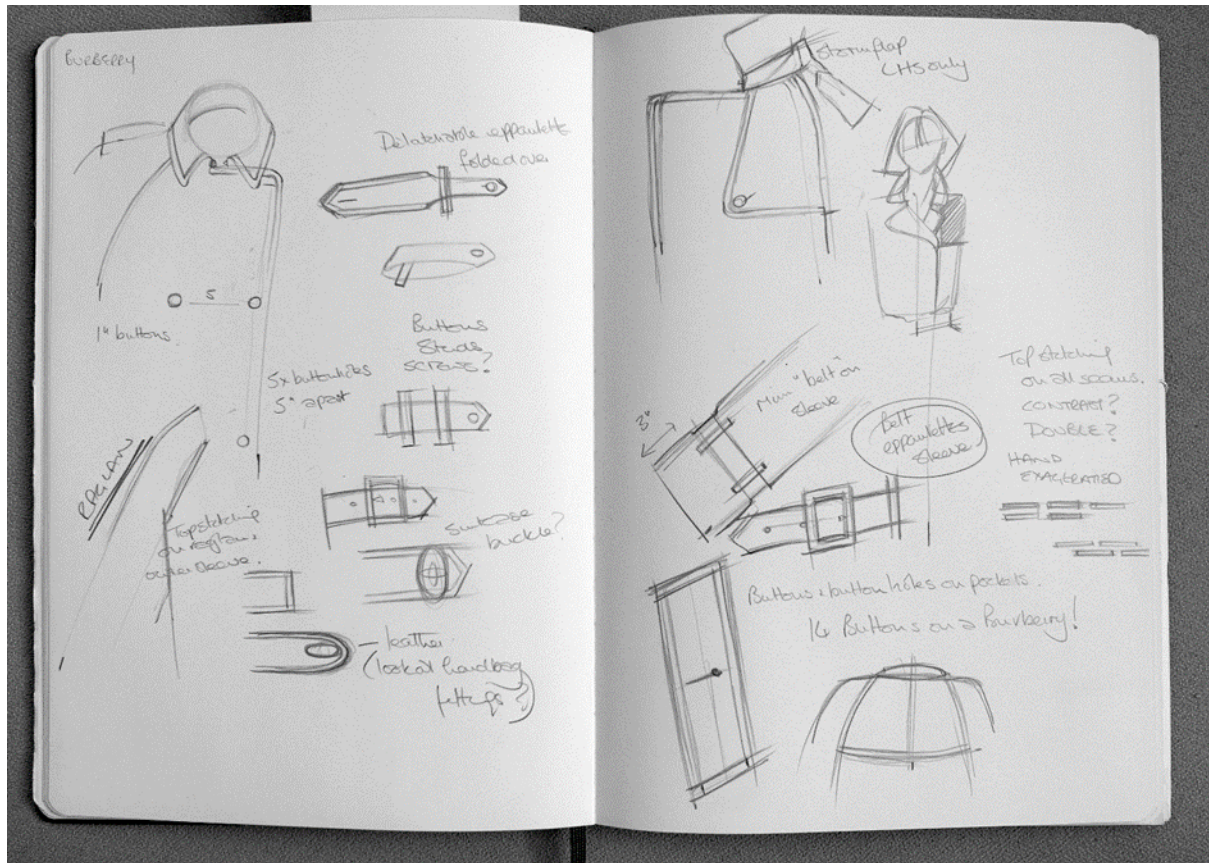 BURBERRY
Detatchable eppaulette
folded over
5
1" buttons.
Buttons
Studs
SCREWS?
5x buttonholes
5" apart
RAGLAN
Topstitching
on raglan &
outer sleeve.
suitcase
buckle?
leather
(look at handbag
fittings?)
stormflap
LHS only
3"
Mini "belt" on
sleeve
Belt
eppaulettes
sleeve
Top stitching
on all seams.
CONTRAST?
DOUBLE?
HAND
EXAGERATED
Buttons & button holes on pockets.
14 Buttons on a Burberry!